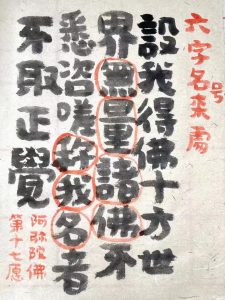 六字名号来處
設我得佛十方世
界無量諸佛不
悉咨嗟称我名者
不取正覺
阿弥陀佛
第十七愿